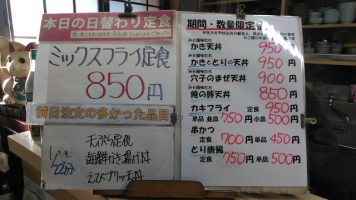 本日の日替わり定食
ミックスフライ定食
850円
前日注文の多かった品目
天ぷら定食
海鮮かき揚げ丼
えびブリッジ丼
期間・数量限定
かき天丼 950
かきとり天丼 950円
穴子のまぜ天丼 900円
俺の豚天丼 850円
カキフライ 定食 950円
単品 750円 小皿 500
串かつ
定食 700円 単品 450円
とり唐揚
定食 750円 単品 500円